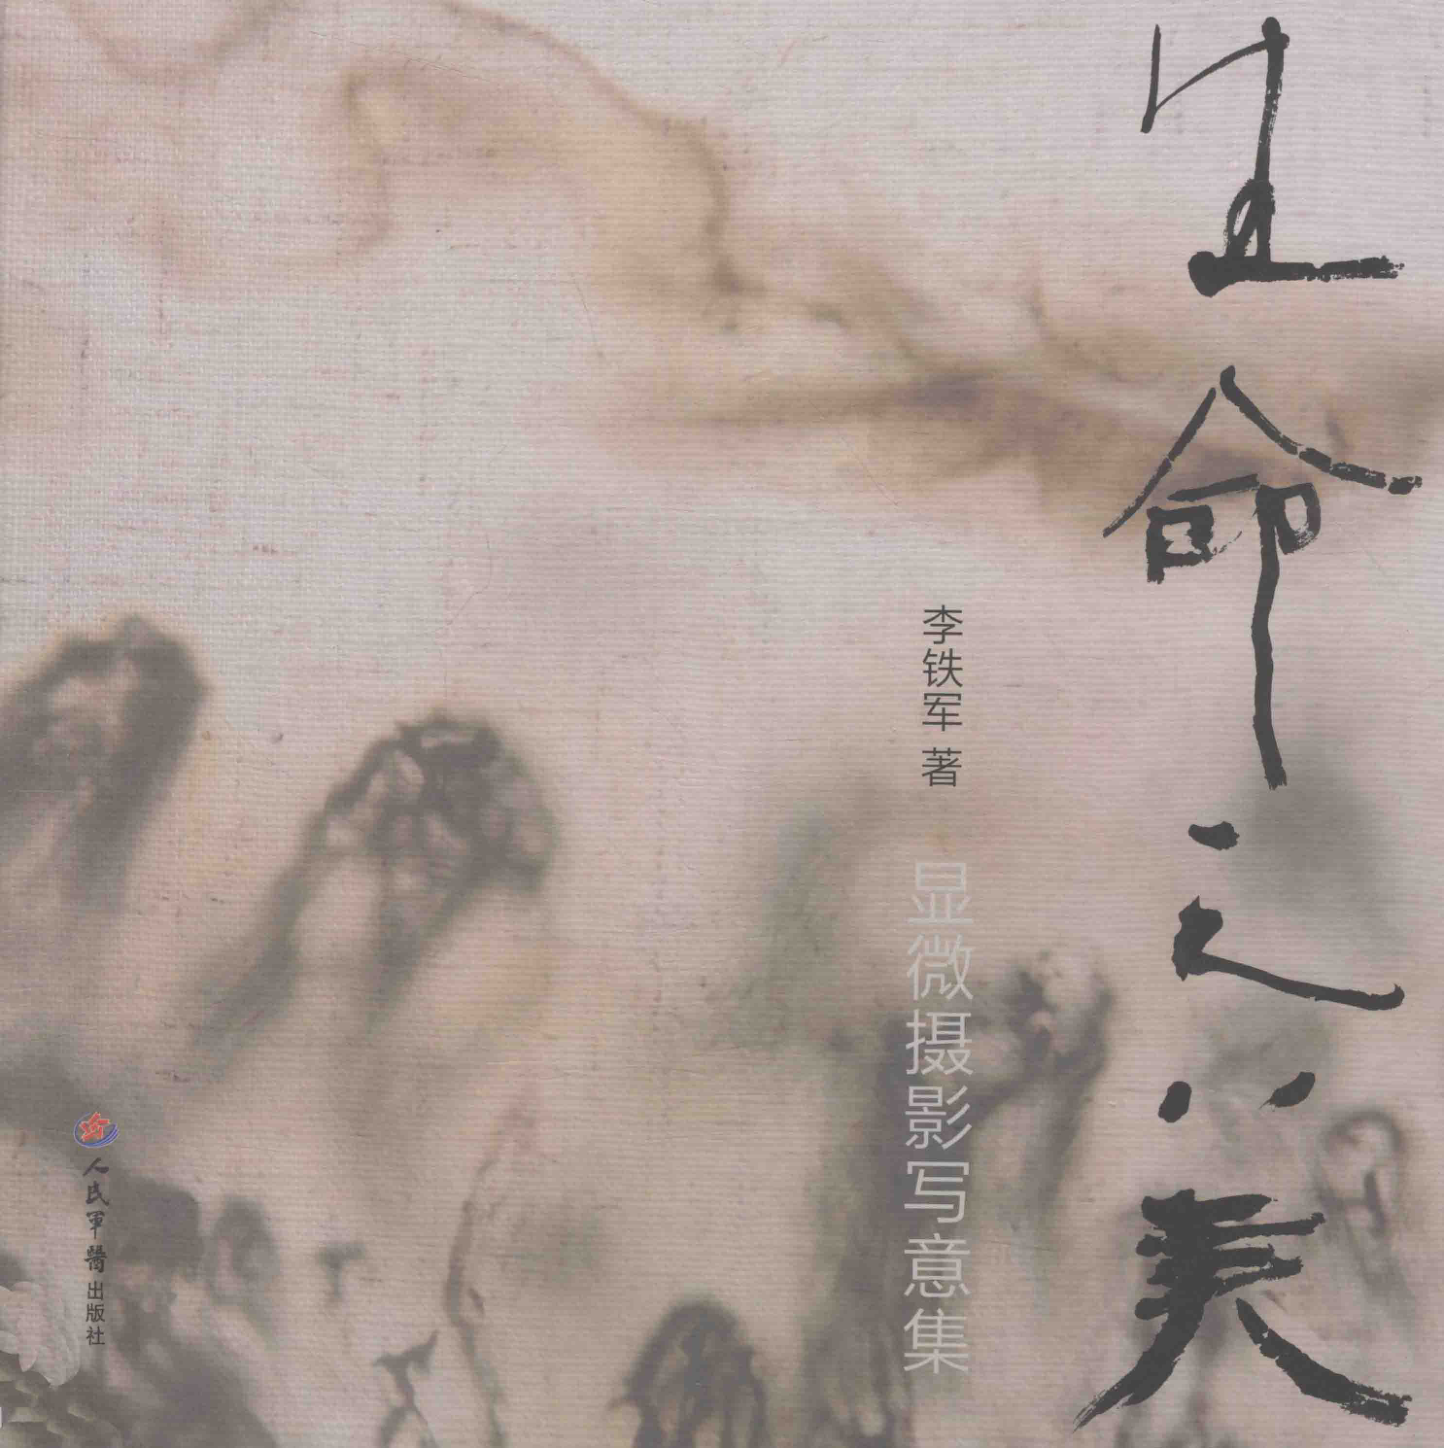 生命之美
李铁军 著
显微摄影写意集
人民軍醫出版社